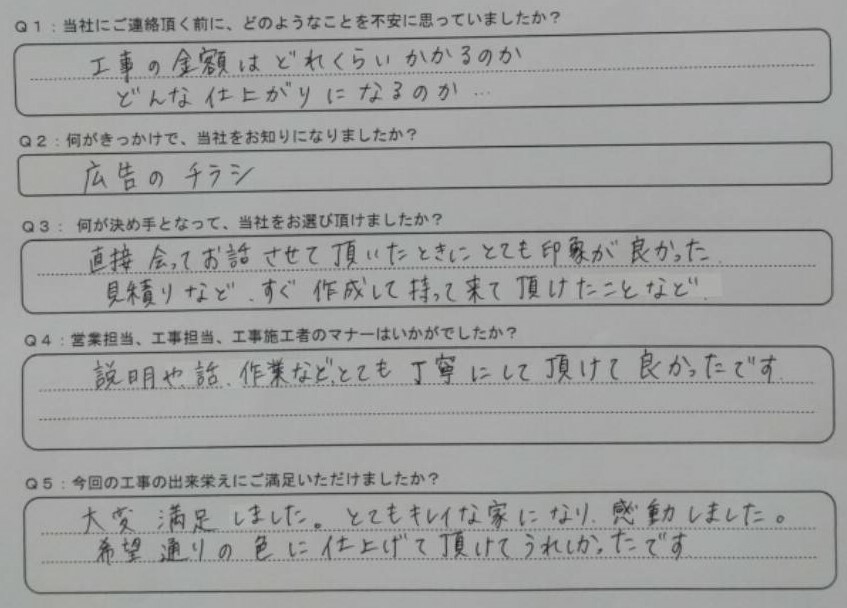 Q1:当社にご連絡頂く前に、どのようなことを不安に思っていましたか?
工事の金額はどれくらいかかるのか
どんな仕上がりになるのか…
Q2:何がきっかけで、当社をお知りになりましたか?
広告のチラシ
Q3: 何が決め手となって、当社をお選び頂けましたか?
直接会ってお話させて頂いたときにとても印象が良かった、
見積りなど、すぐ作成して持って来て頂けたことなど、
Q4:営業担当、工事担当、工事施工者のマナーはいかがでしたか?
説明や、話、作業など、とても丁寧にして頂けて良かったです、
Q5:今回の工事の出来栄えにご満足いただけましたか?
大変満足しました。とてもキレイな家になり、感動しました。
希望通りの色に仕上げて頂けてうれしかったです